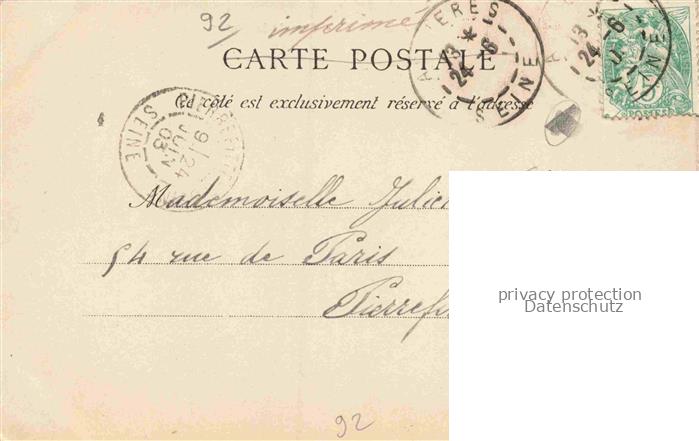 92 imprimé
CARTE POSTALE
Ce côté est exclusivement réservé à l'adresse
ASNIERES SEINE
13 * 24-6
PIERREFITTE
SEINE
9/24
JUIN
03
Mademoiselle Julie
54 rue de Paris
Pierrefi
privacy protection
Datenschutz
92